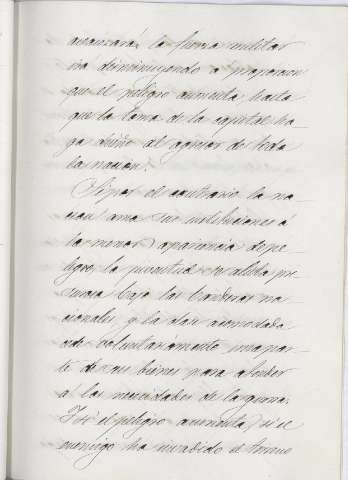 avanzará; la fuerza militar
irá disminuyendo á proporcion
que el peligro aumenta, hasta
que la toma de la capital ha-
ga dueño al agresor de toda
la nacion.
Si por el contrario la na-
cion ama sus instituciones á
la menor apariencia de pe-
ligro, la juventud se alista pre-
surosa bajo las banderas na-
cionales y la clase acomodada
cede voluntariamente una par-
te de sus bienes para atender
á las necesidades de la guerra.
Y si el peligro aumenta, si el
enemigo ha invadido el terreno